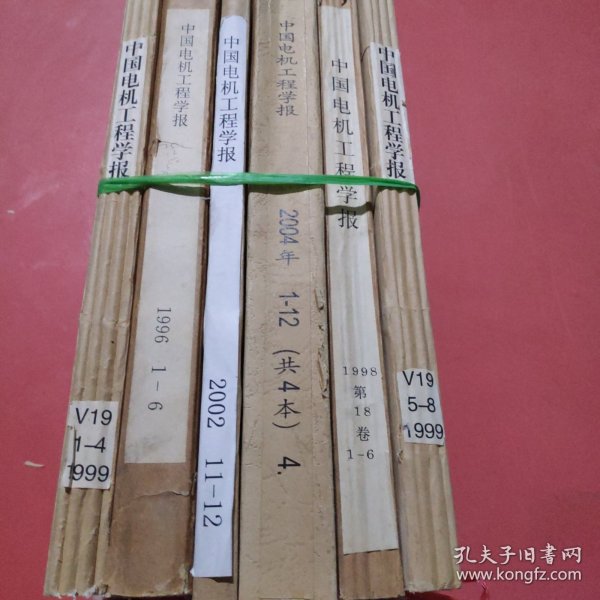 中国电机工程学报
V19
1-4
1999
中国电机工程学报
1996 1-6
中国电机工程学报
2002 11-12
中国电机工程学报
2004年 1-12 (共4本) 4.
中国电机工程学报
1998
第
18
卷
1-6
中国电机工程学报
V19
5-8
1999
孔夫子旧书网
www.kongfz.com